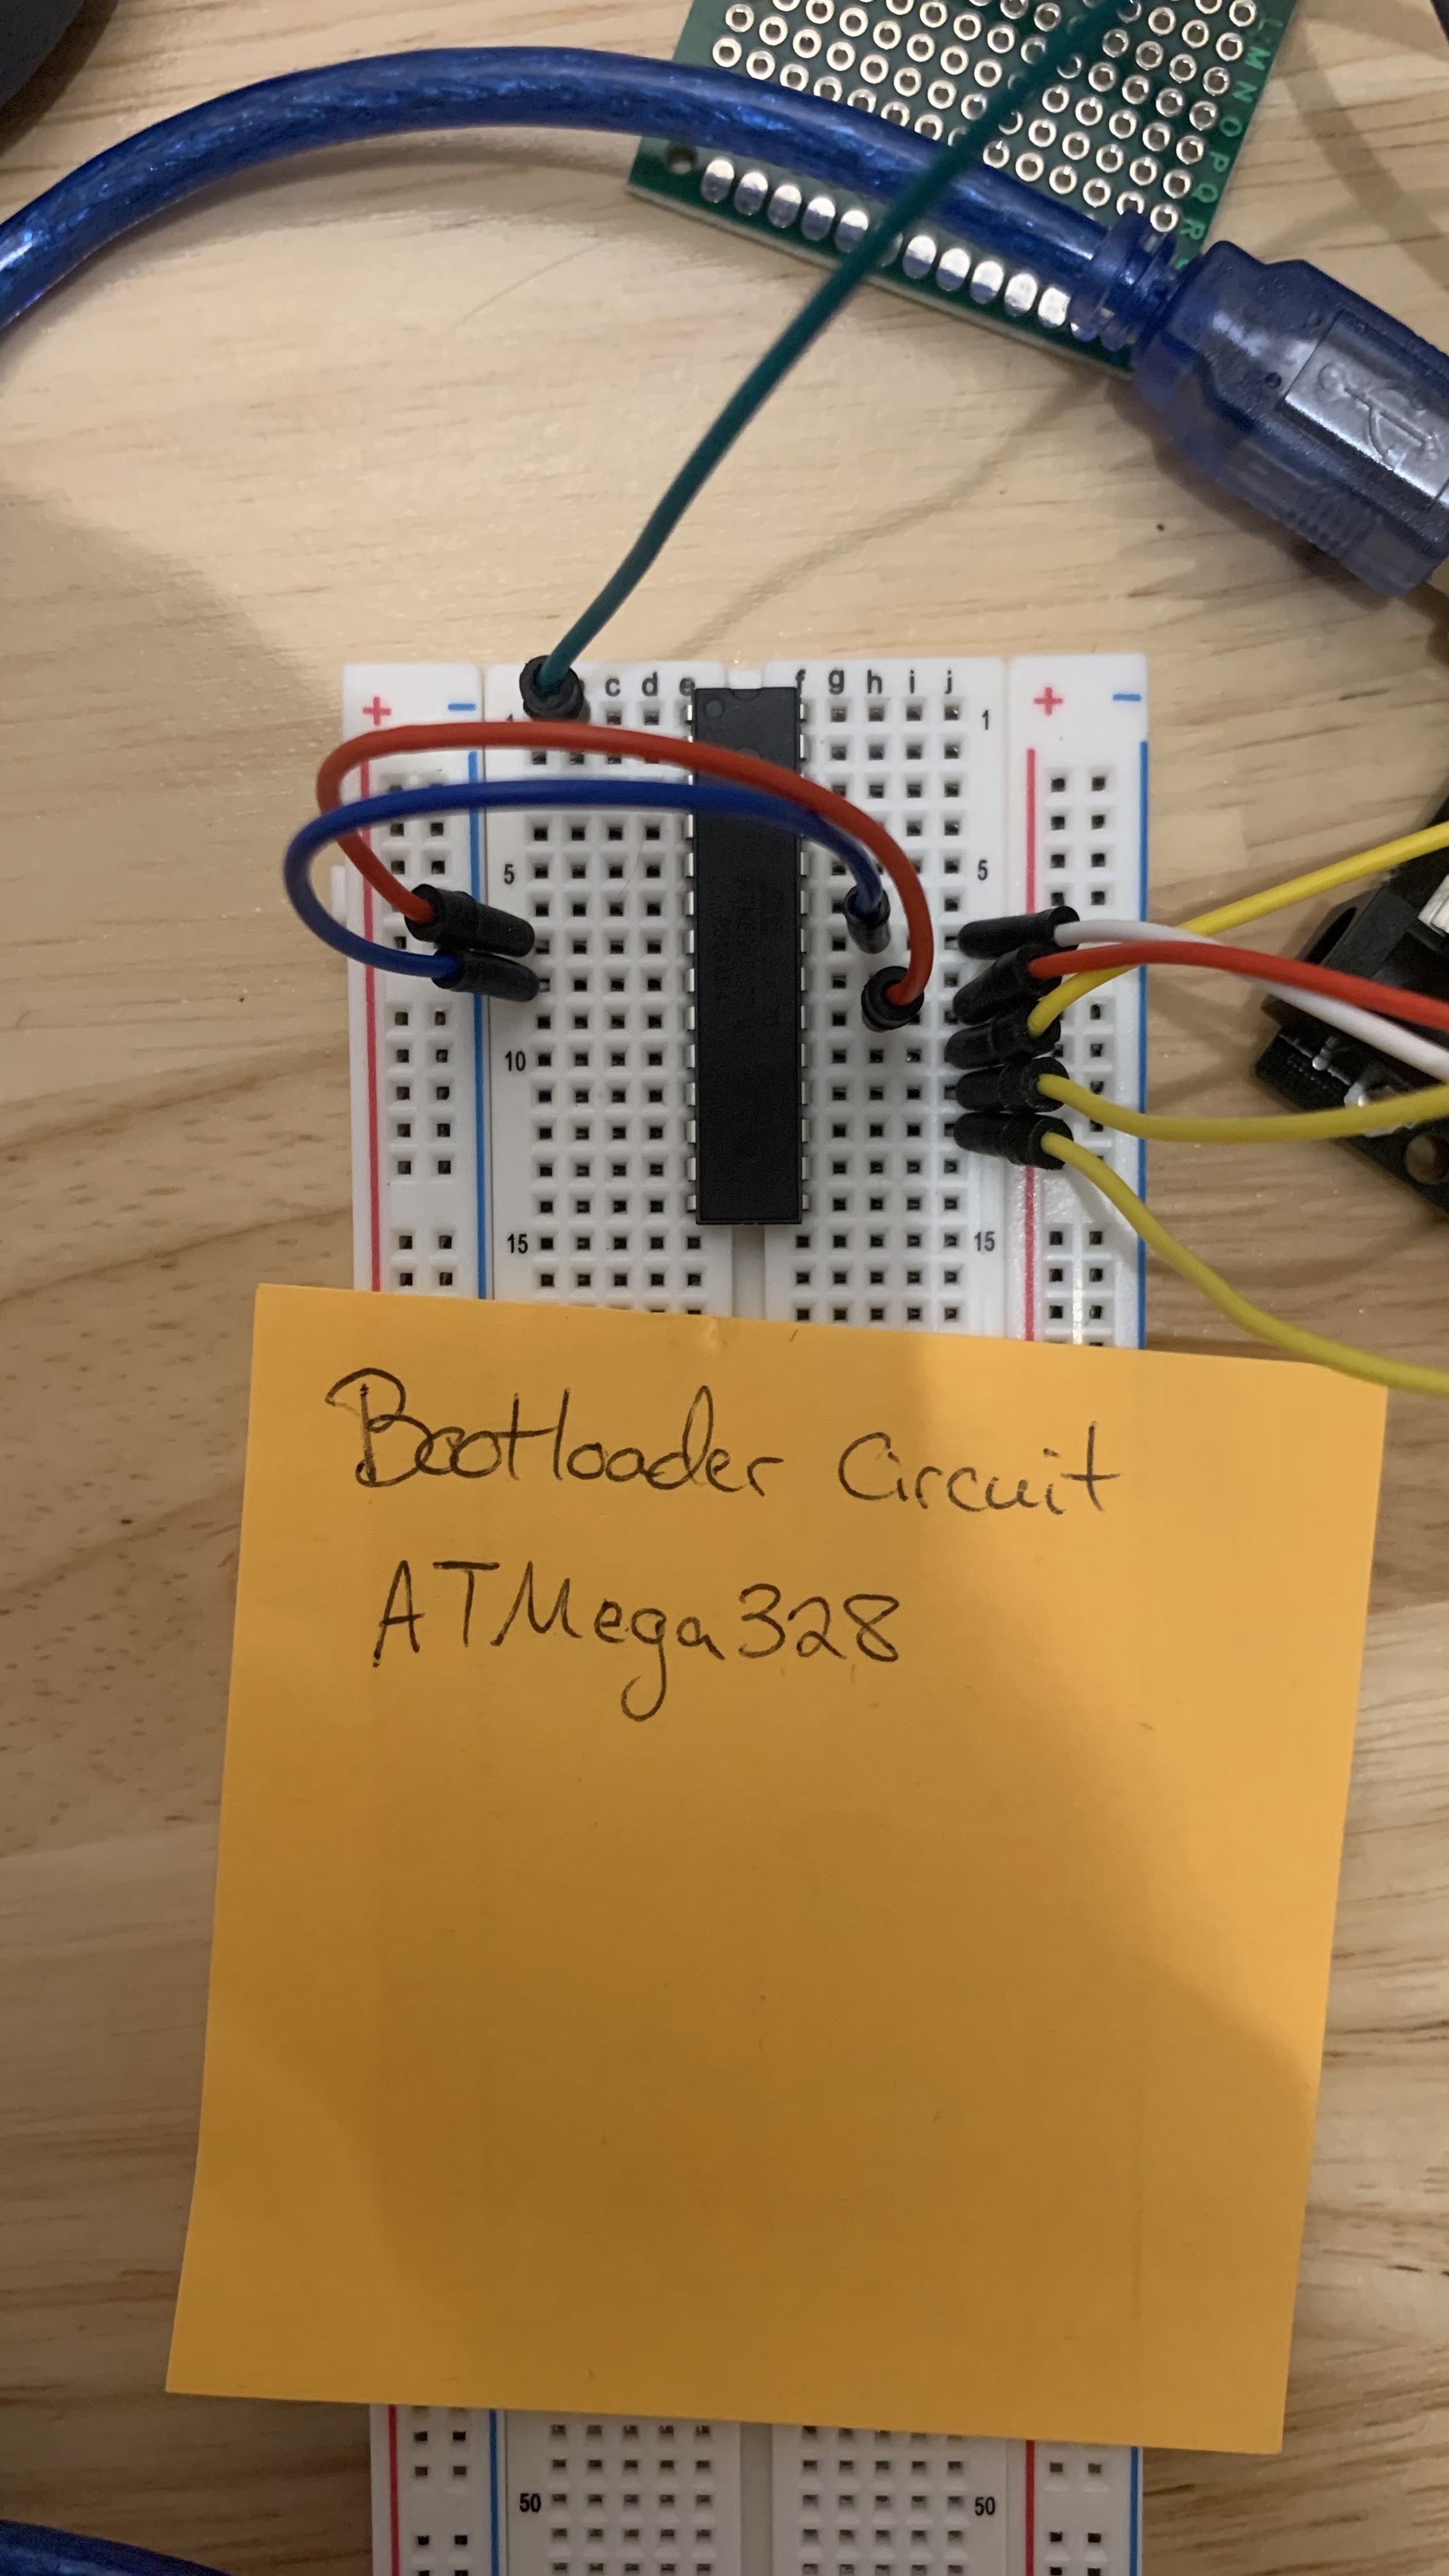 L
M
N
O
P
Q
R
+ − c d e f g h i j + −
1 1
5 5
10
15 15
Bootloader Circuit
ATMega328
50 50